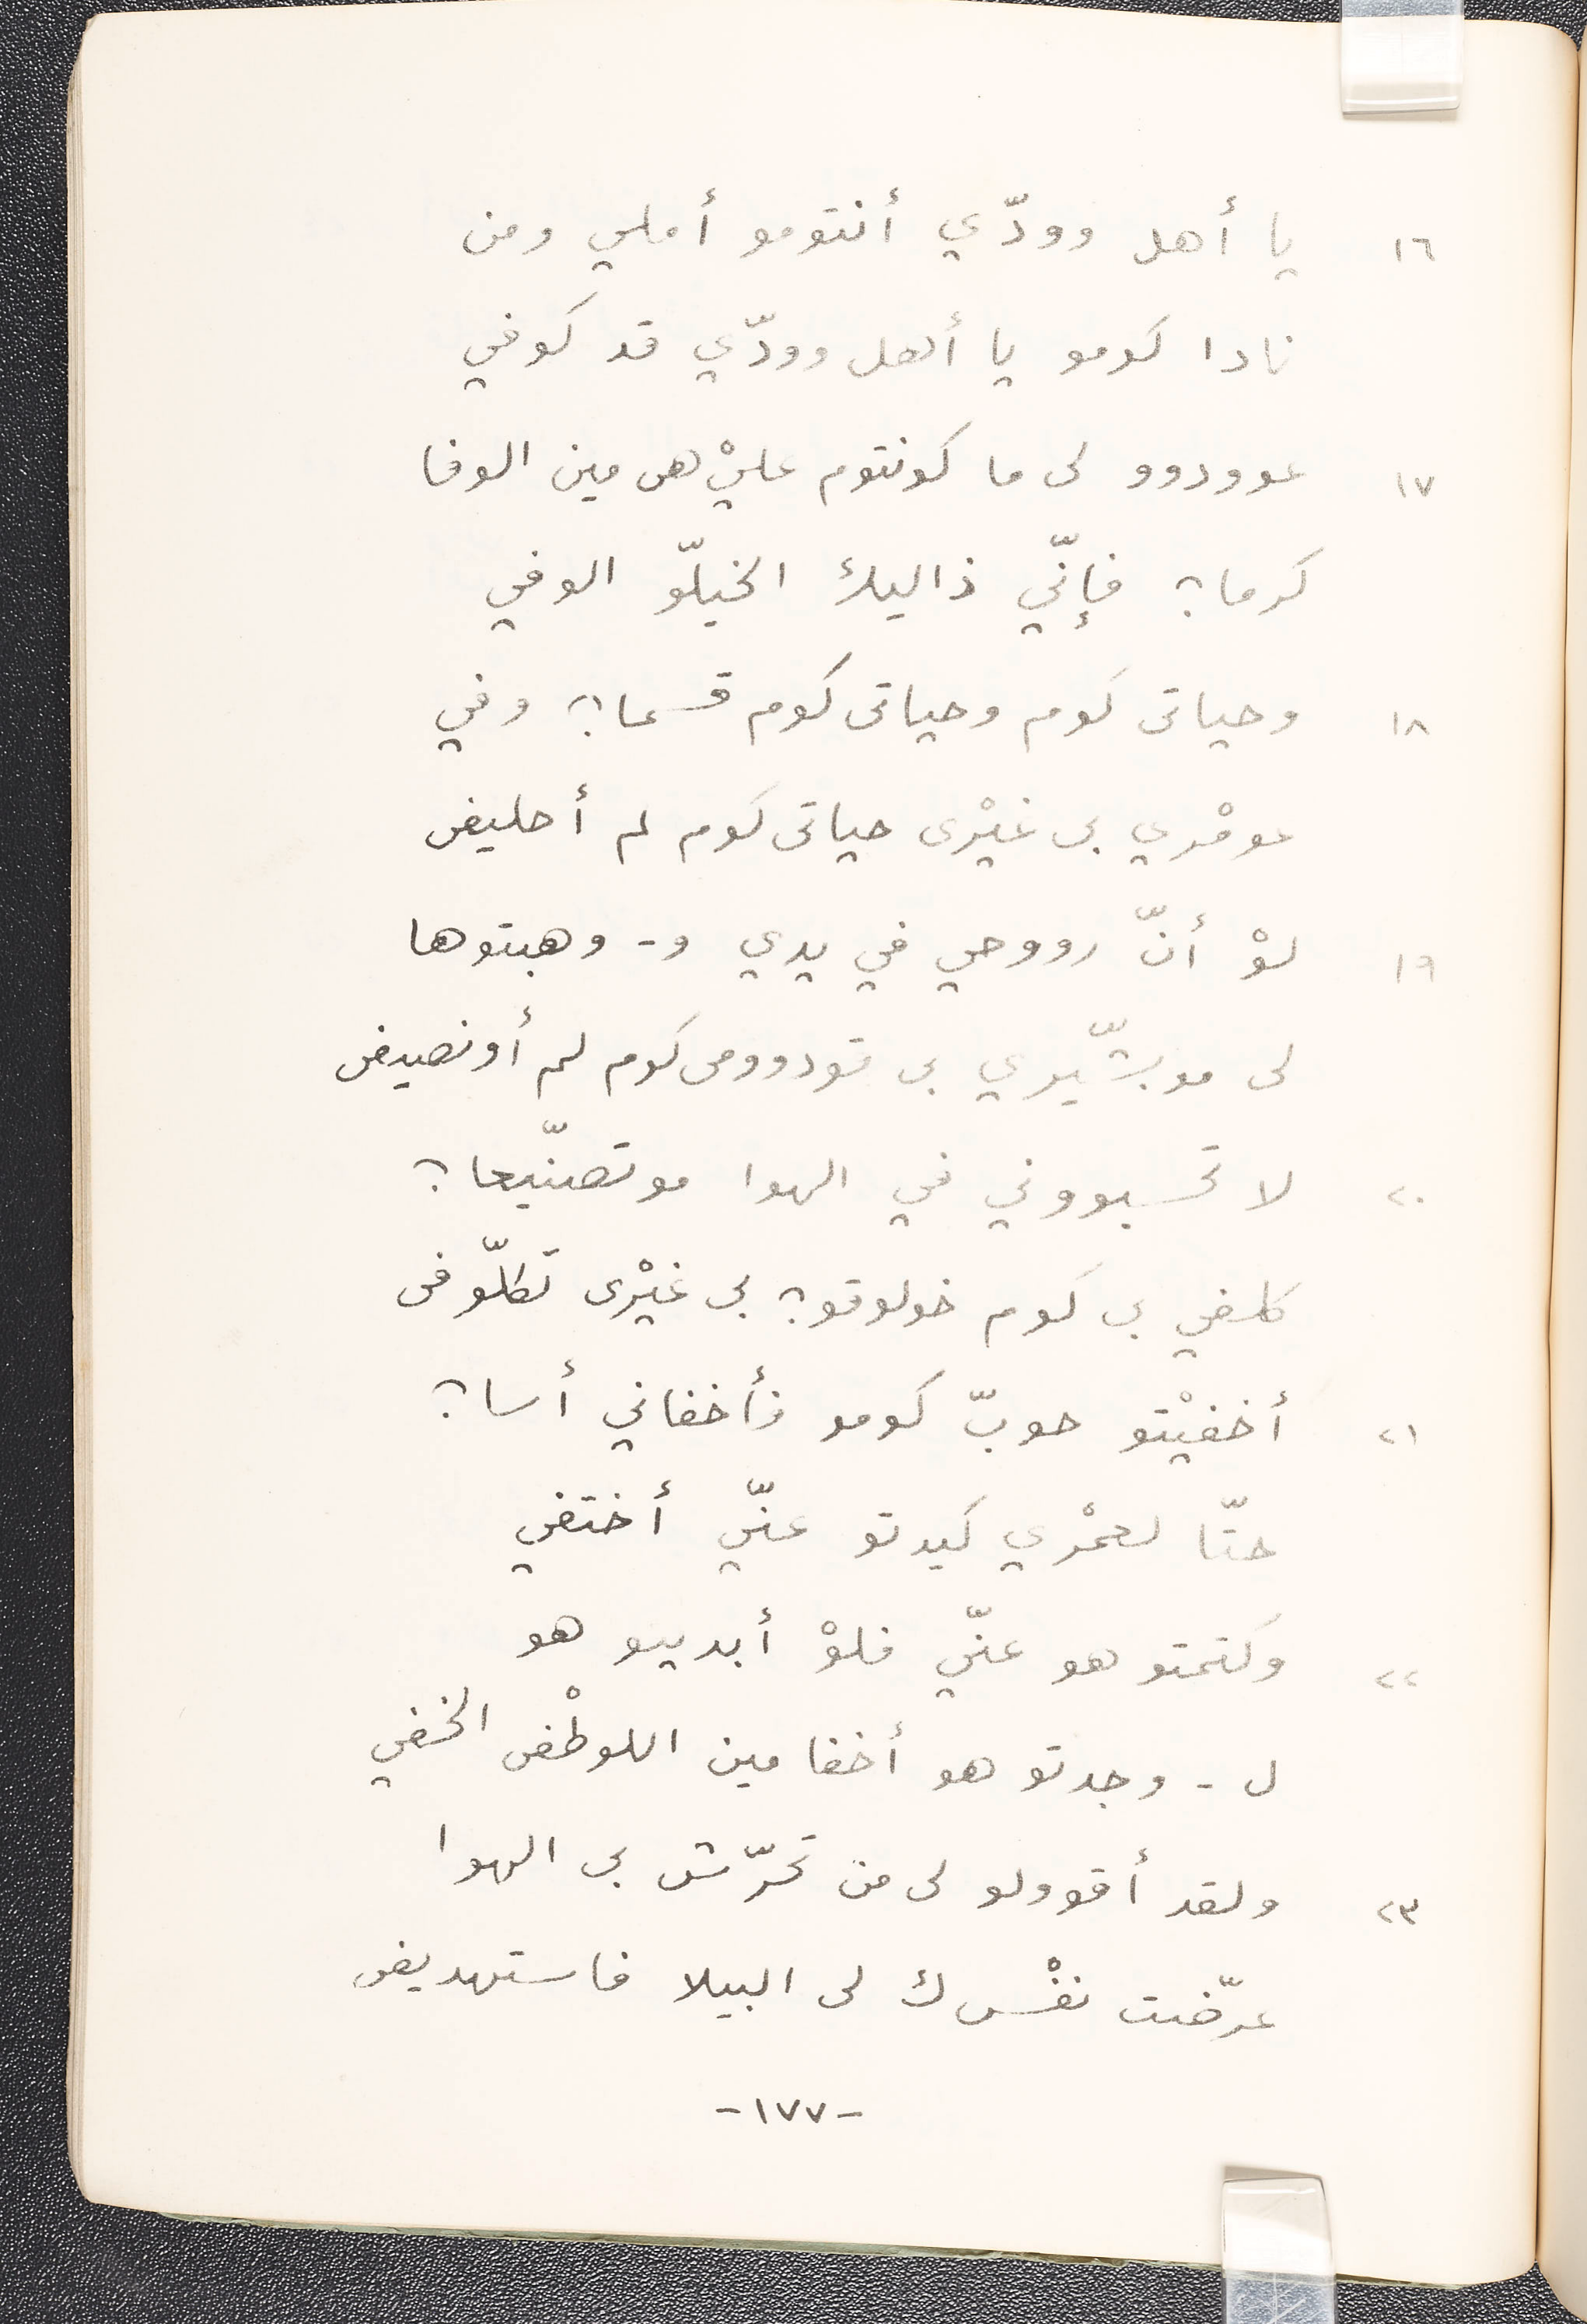 ١٦ يا أهل وودّي أنتومو أملي ومن
نادا كومو يا أهل وودّي قد كوفي
١٧ عوودوو لى ما كونتوم عليْهى مين الوفا
كرما؟ فإنّي ذاليك الخيلّو الوفي
١٨ وحياتى كوم وحياتى كوم قسما؟ وفي
عومْري بى غيْرى حياتى كوم لم أحليف
١٩ لوْ أنّ رووحي في يدي و- وهبتوها
لى موبشّيري بى قودوومى كوم لم أونصيف
٢٠ لا تحسبووني في الهوا موتصنّيعا؟
كلفي بى كوم خولوقو؟ بى غيْرى تكلّوفى
٢١ أخفيْتو حوبّ كومو فأخفاني أسا؟
حتّا لعمْري كيدتو عنّي أختفي
٢٢ وكتمتو هو عنّي فلوْ أبديتو هو
ل - وجدتو هو أخفا مين اللوطْفى الخفي
٢٣ ولقد أقوولو لى من تحرّش بى الهوا
عرّضت نفْسك لى البيلا فاستهديف
-١٧٧-